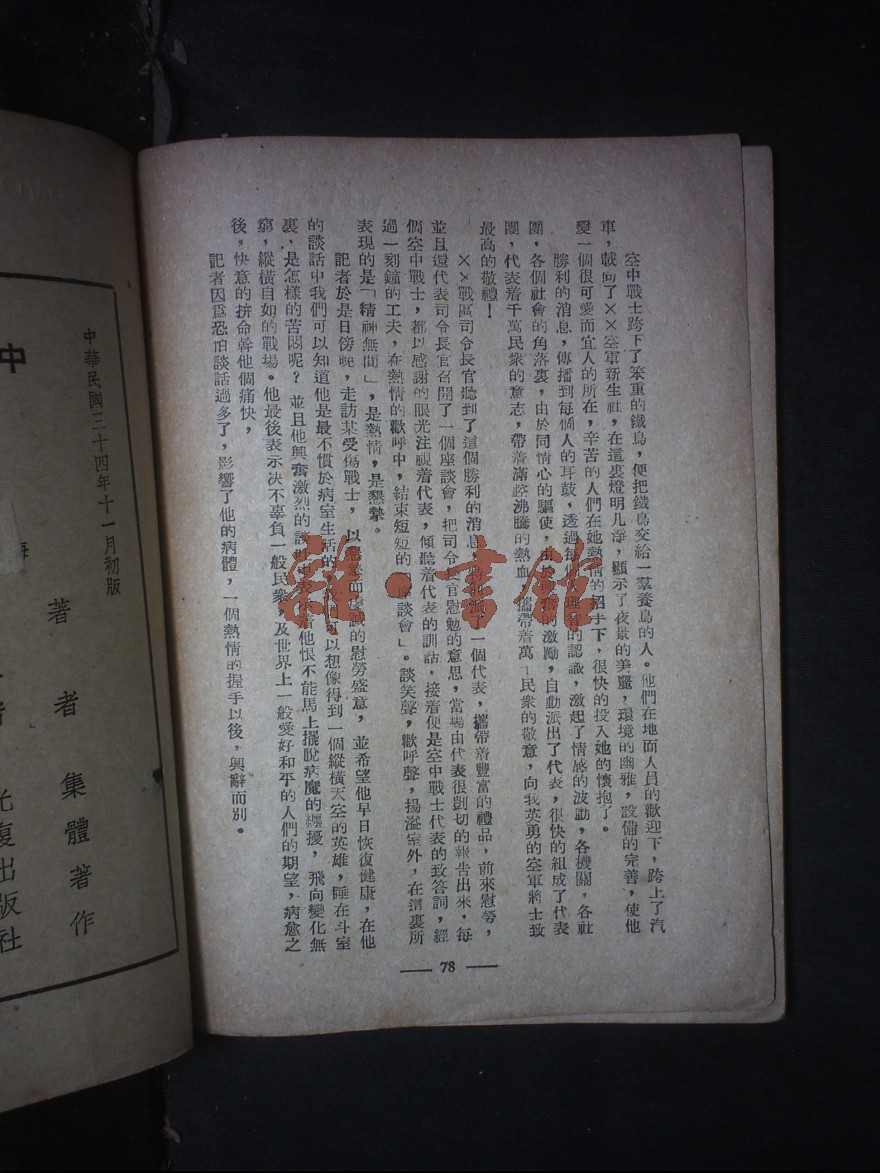 空中戰士跨下了笨重的鐵鳥，便把鐵鳥交給一羣養鳥的人。他們在地面人員的歡迎下，跨上了汽
車，載向了××空軍新生社，在這裏燈明几淨，顯示了夜景的美麗，環境的幽雅，設備的完善，使他
愛一個很可愛而宜人的所在，辛苦的人們在她熱情的招手下，很快的投入她的懷抱了。
勝利的消息，傳播到每個人的耳鼓，透過每個人的認識，激起了情感的波動，各機關，各社
團，各個社會的角落裏，由於同情心的驅使，激勵，自動派出了代表，很快的組成了代表
團，代表着千萬民衆的意志，帶着滿腔沸騰的熱血，攜帶着萬千民衆的敬意，向我英勇的空軍將士致
最高的敬禮！
××戰區司令長官聽到了這個勝利的消息，了一個代表，攜帶着豐富的禮品，前來慰勞，
並且還代表司令長官召開了一個座談會，把司令長官慰勉的意思，當場由代表很剴切的報告出來，每
個空中戰士，都以感謝的眼光注視着代表，傾聽着代表的訓話，接着便是空中戰士代表的致答詞，經
過一刻鐘的工夫，在熱情的歡呼中，結束短短的「座談會」。談笑聲，歡呼聲，揚溢室外，在這裏所
表現的是「精神無間」，是熱情，是懇摯。
記者於是日傍晚，走訪某受傷戰士，以誠的慰勞盛意，並希望他早日恢復健康，在他
的談話中我們可以知道他是最不慣於病室生活的，可以想像得到一個縱橫天空的英雄，睡在斗室
裏，是怎樣的苦悶呢？並且他興奮激烈的談他恨不能馬上擺脫病魔的纏擾，飛向變化無
窮，縱橫自如的戰場。他最後表示決不辜負一般民衆，及世界上一般愛好和平的人們的期望，病愈之
後，快意的拚命幹他個痛快，
記者因爲恐怕談話過多了，影響了他的病體，一個熱情的握手以後，興辭而別。
78
雜·書館
中華民國三十四年十一月初版
中
著者集體著作
光復出版社